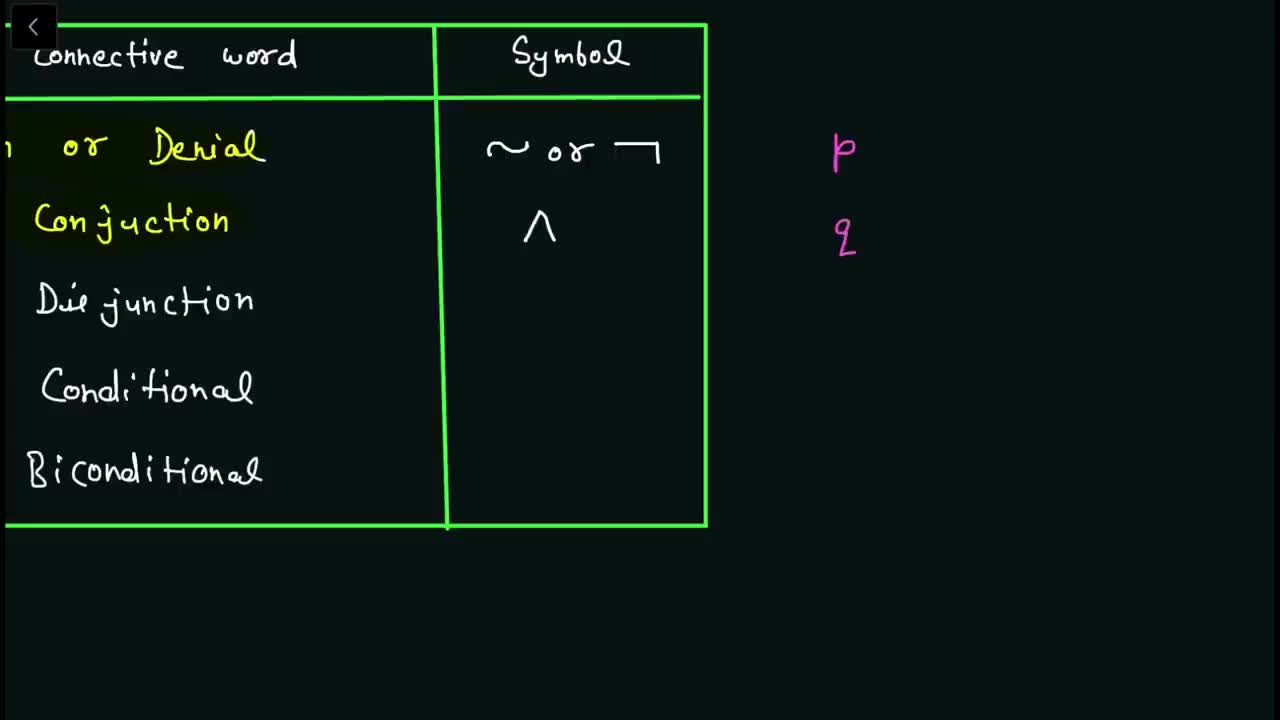 Connective word Symbol
n or Denial ~ or ¬ p
Conjuction ∧ q
Disjunction
Conditional
Biconditional